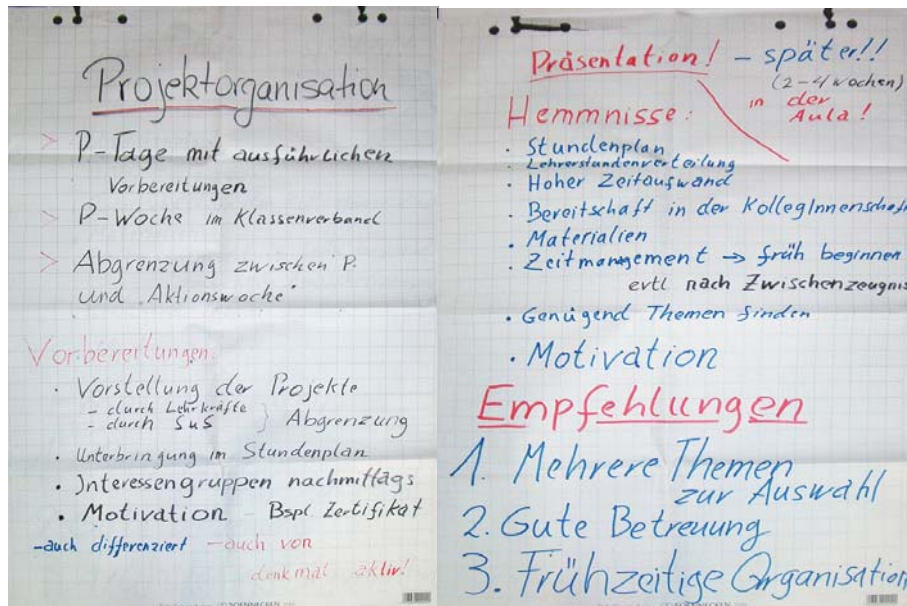 Projektorganisation
> P.-Tage mit ausführlichen
Vorbereitungen
> P-Woche im Klassenverband
> Abgrenzung zwischen P.
und "Aktionswoche"
Vorbereitungen:
· Vorstellung der Projekte
- durch Lehrkräfte
- durch SuS } Abgrenzung
· Unterbringung im Stundenplan
· Interessengruppen nachmittags
· Motivation - Bspl. Zertifikat
-auch differenziert -auch von
denkmal aktiv!
Präsentation! - später!!
(2-4 wochen)
in der
Aula!
Hemmnisse:
· Stundenplan
· Lehrerstundenverteilung
· Hoher Zeitauswand
· Bereitschaft in der KollegInnenschaft
· Materialien
· Zeitmanagement → früh beginnen
evtl nach Zwischenzeugnis
· Genügend Themen finden
· Motivation
Empfehlungen
1. Mehrere Themen
zur Auswahl
2. Gute Betreuung
3. Frühzeitige Organisation